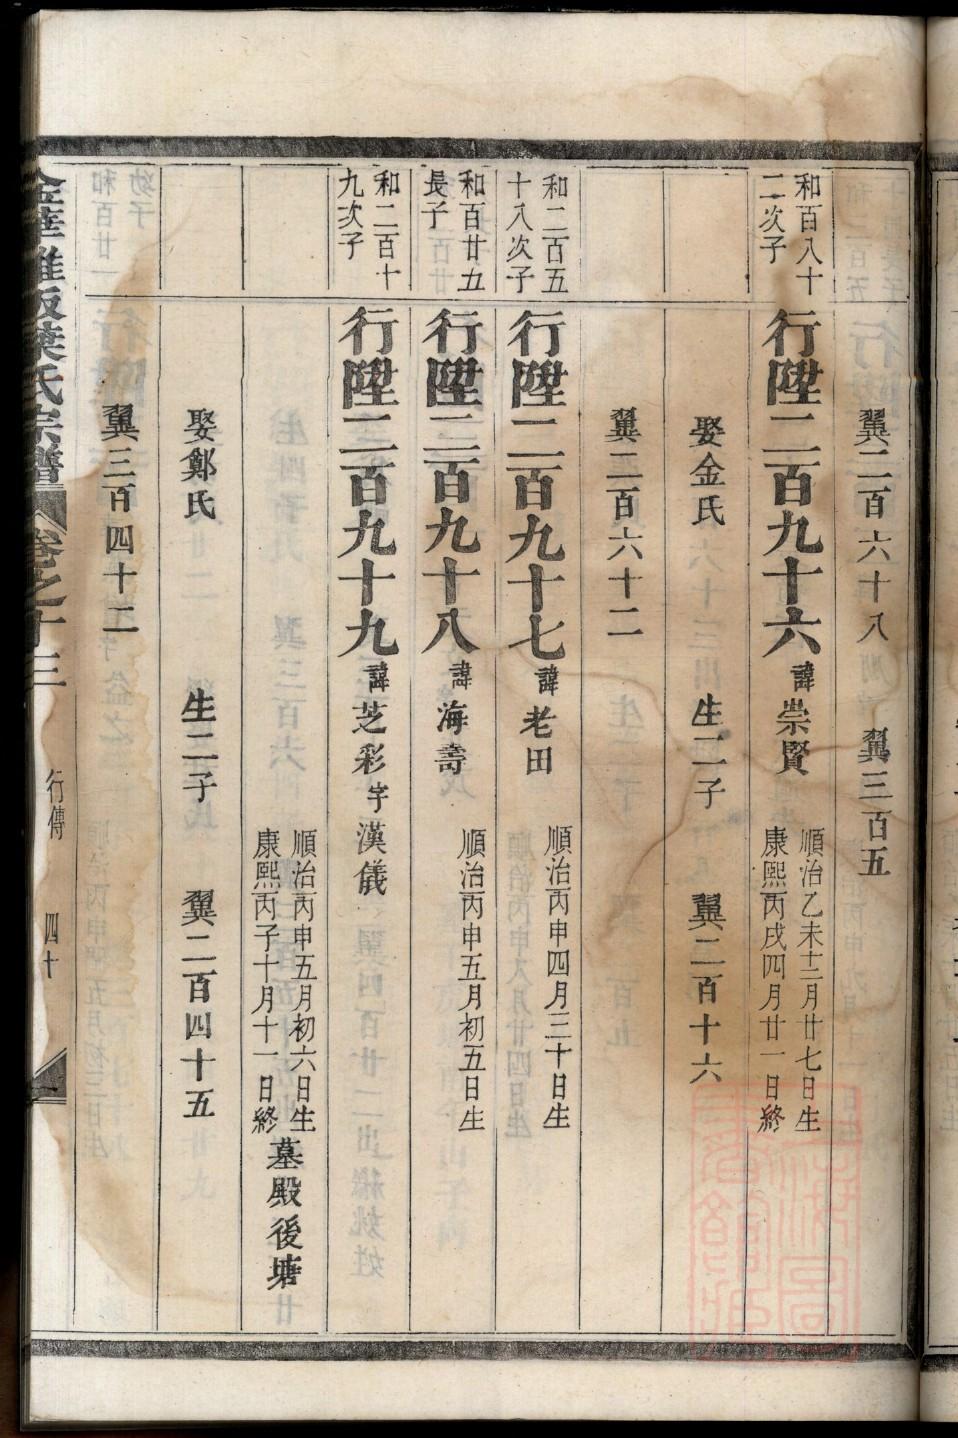 翼二百六十八 翼三百五
和百八十二次子
行陞二百九十六 諱崇賢 順治乙未十二月廿七日生 康熙丙戌四月廿一日終
娶金氏 生二子 翼二百十六
翼二百六十二
和二百五十八次子
行陞二百九十七 諱老田 順治丙申四月三十日生
和百廿五長子
行陞二百九十八 諱海壽 順治丙申五月初五日生
和二百十九次子
行陞二百九十九 諱芝彩 字漢儀
順治丙申五月初六日生 康熙丙子十月十一日終 墓殿後塘
娶鄭氏 生二子 翼二百四十五
翼三百四十二
氏宗譜 卷之十三 行傳 四十